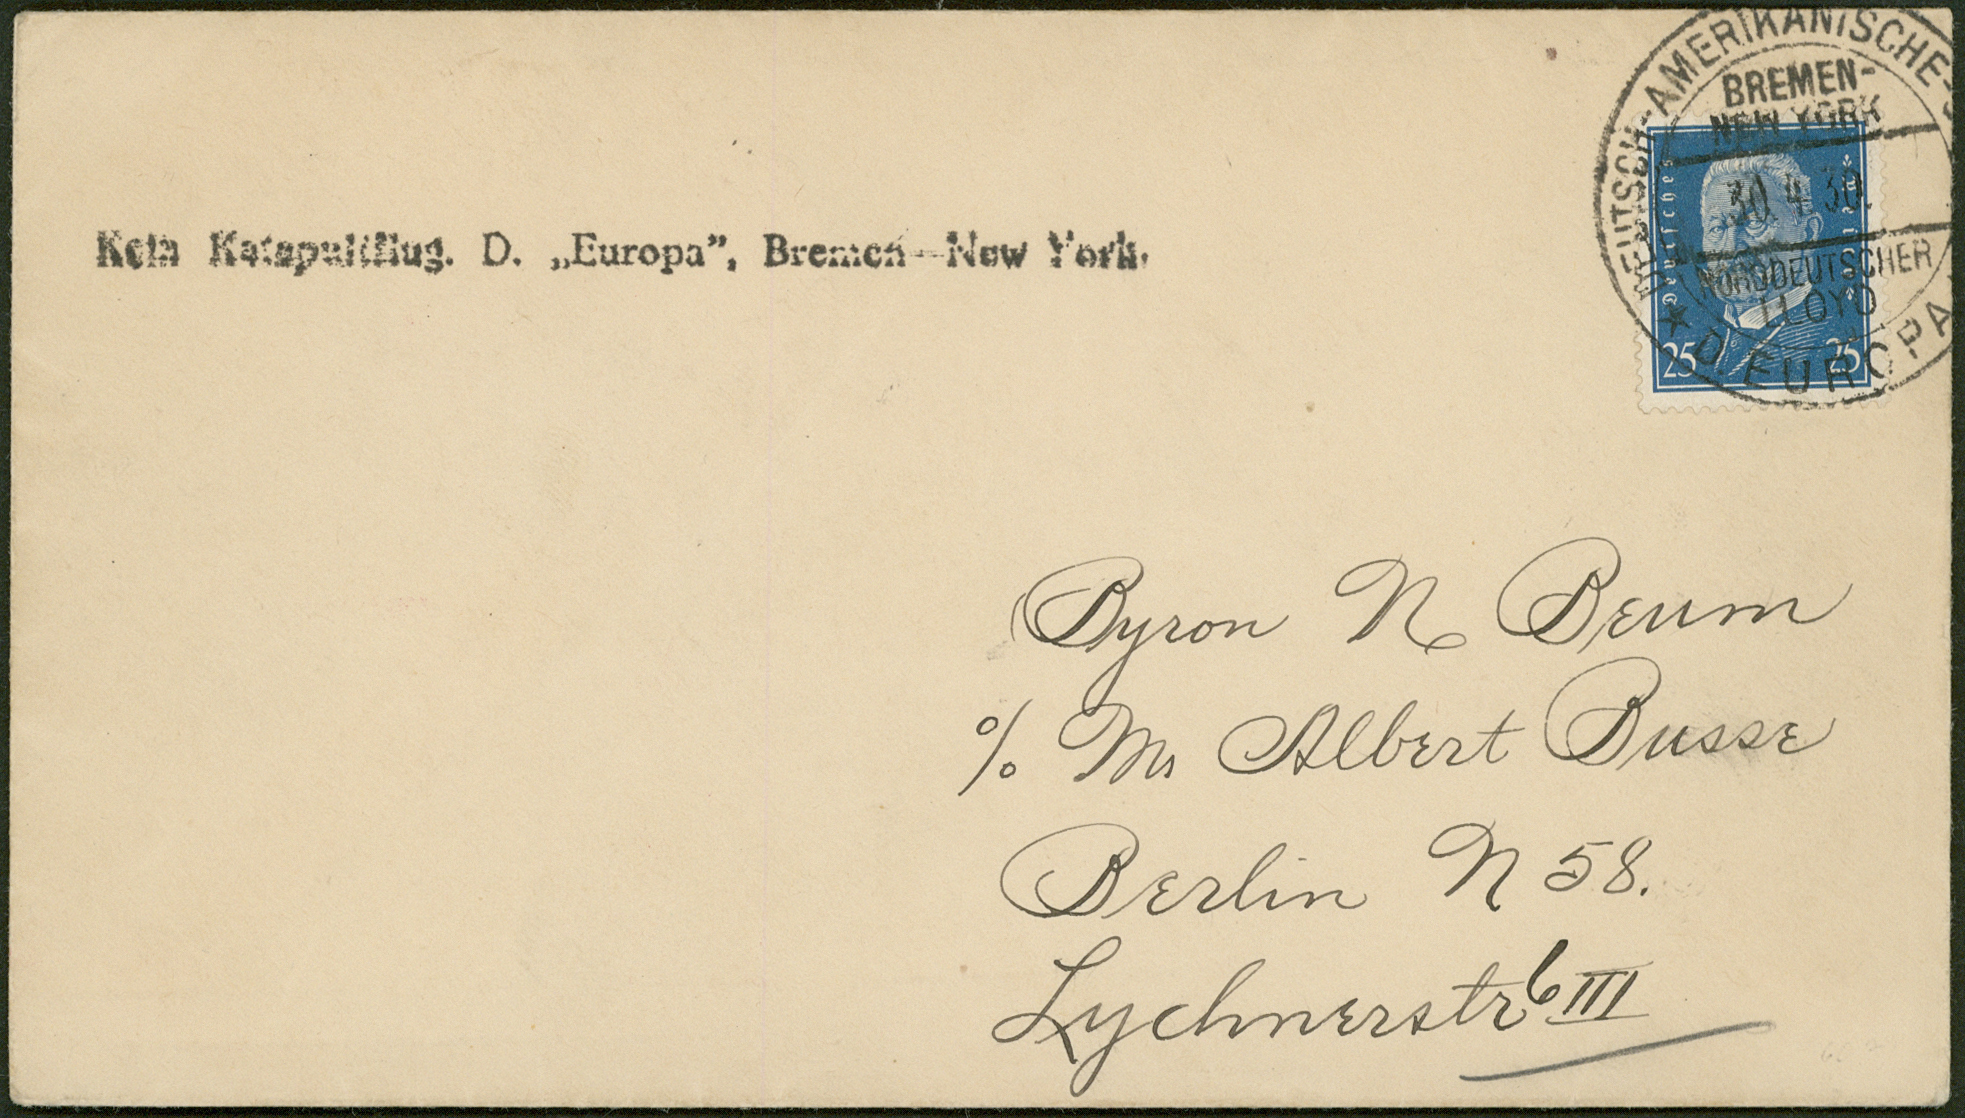 DEUTSCH-AMERIKANISCHE-
BREMEN-
NEW YORK
30.4.30.
NORDDEUTSCHER
LLOYD
* D. EUROPA
Deutsches Reich
25 25
Kein Katapultflug. D. „Europa”, Bremen—New York.
Byron N Beum
% Mr Albert Busse
Berlin N 58.
Lychnerstr 6 III